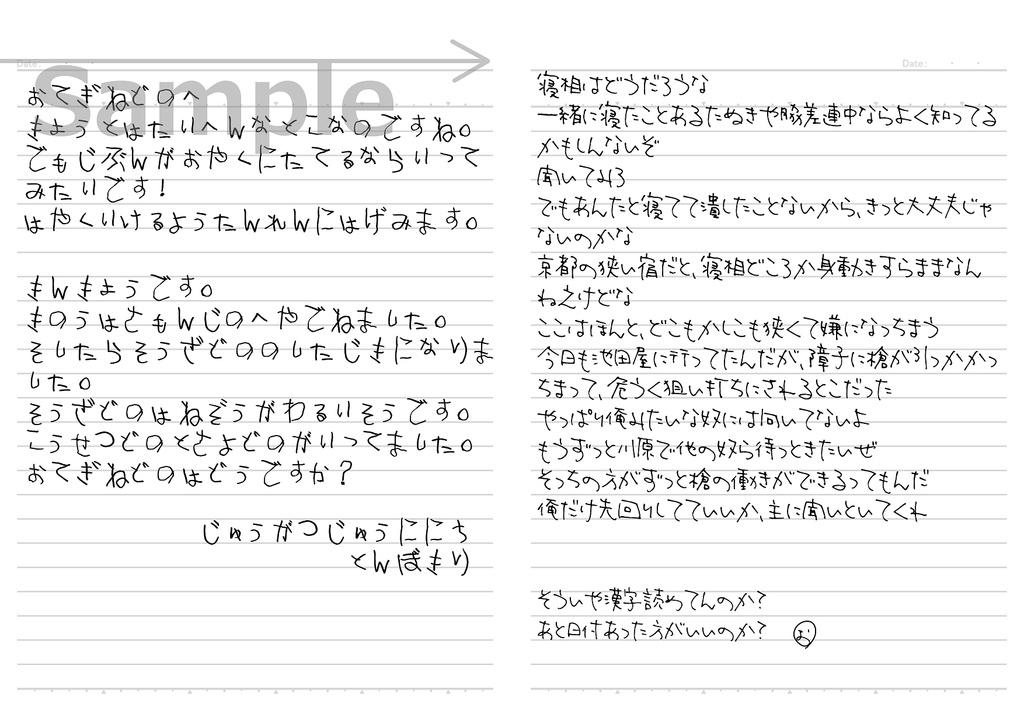 Sample
Date:
おてぎねどのへ
きょうとはたいへんなとこなのですね。
でもじぶんがおやくにたてるならいって
みたいです！
はやくいけるようたんれんにはげみます。
きんきょうです。
きのうはさもんじのへやでねました。
そしたらそうざどののしたじきになりま
した。
そうざどのはねぞうがわるいそうです。
こうせつどのとさよどのがいってました。
おてぎねどのはどうですか？
じゅうがつじゅうににち
とんぼきり
Date:
寝相はどうだろうな
一緒に寝たことあるたぬきや脇差連中ならよく知ってる
かもしんないぞ
聞いてみろ
でもあんたと寝てて潰したことないから、きっと大丈夫じゃ
ないのかな
京都の狭い宿だと、寝相どころか身動きすらままなん
ねえけどな
ここはほんと、どこもかしこも狭くて嫌になっちまう
今日も池田屋に行ってたんだが、障子に槍が引っかかっ
ちまって、危うく狙い打ちにされるとこだった
やっぱり俺みたいな奴には向いてないよ
もうずっと川原で他の奴ら待っときたいぜ
そっちの方がずっと槍の働きができるってもんだ
俺だけ先回りしてていいか、主に聞いといてくれ
そういや漢字読めてんのか？
あと日付あった方がいいのか？ お